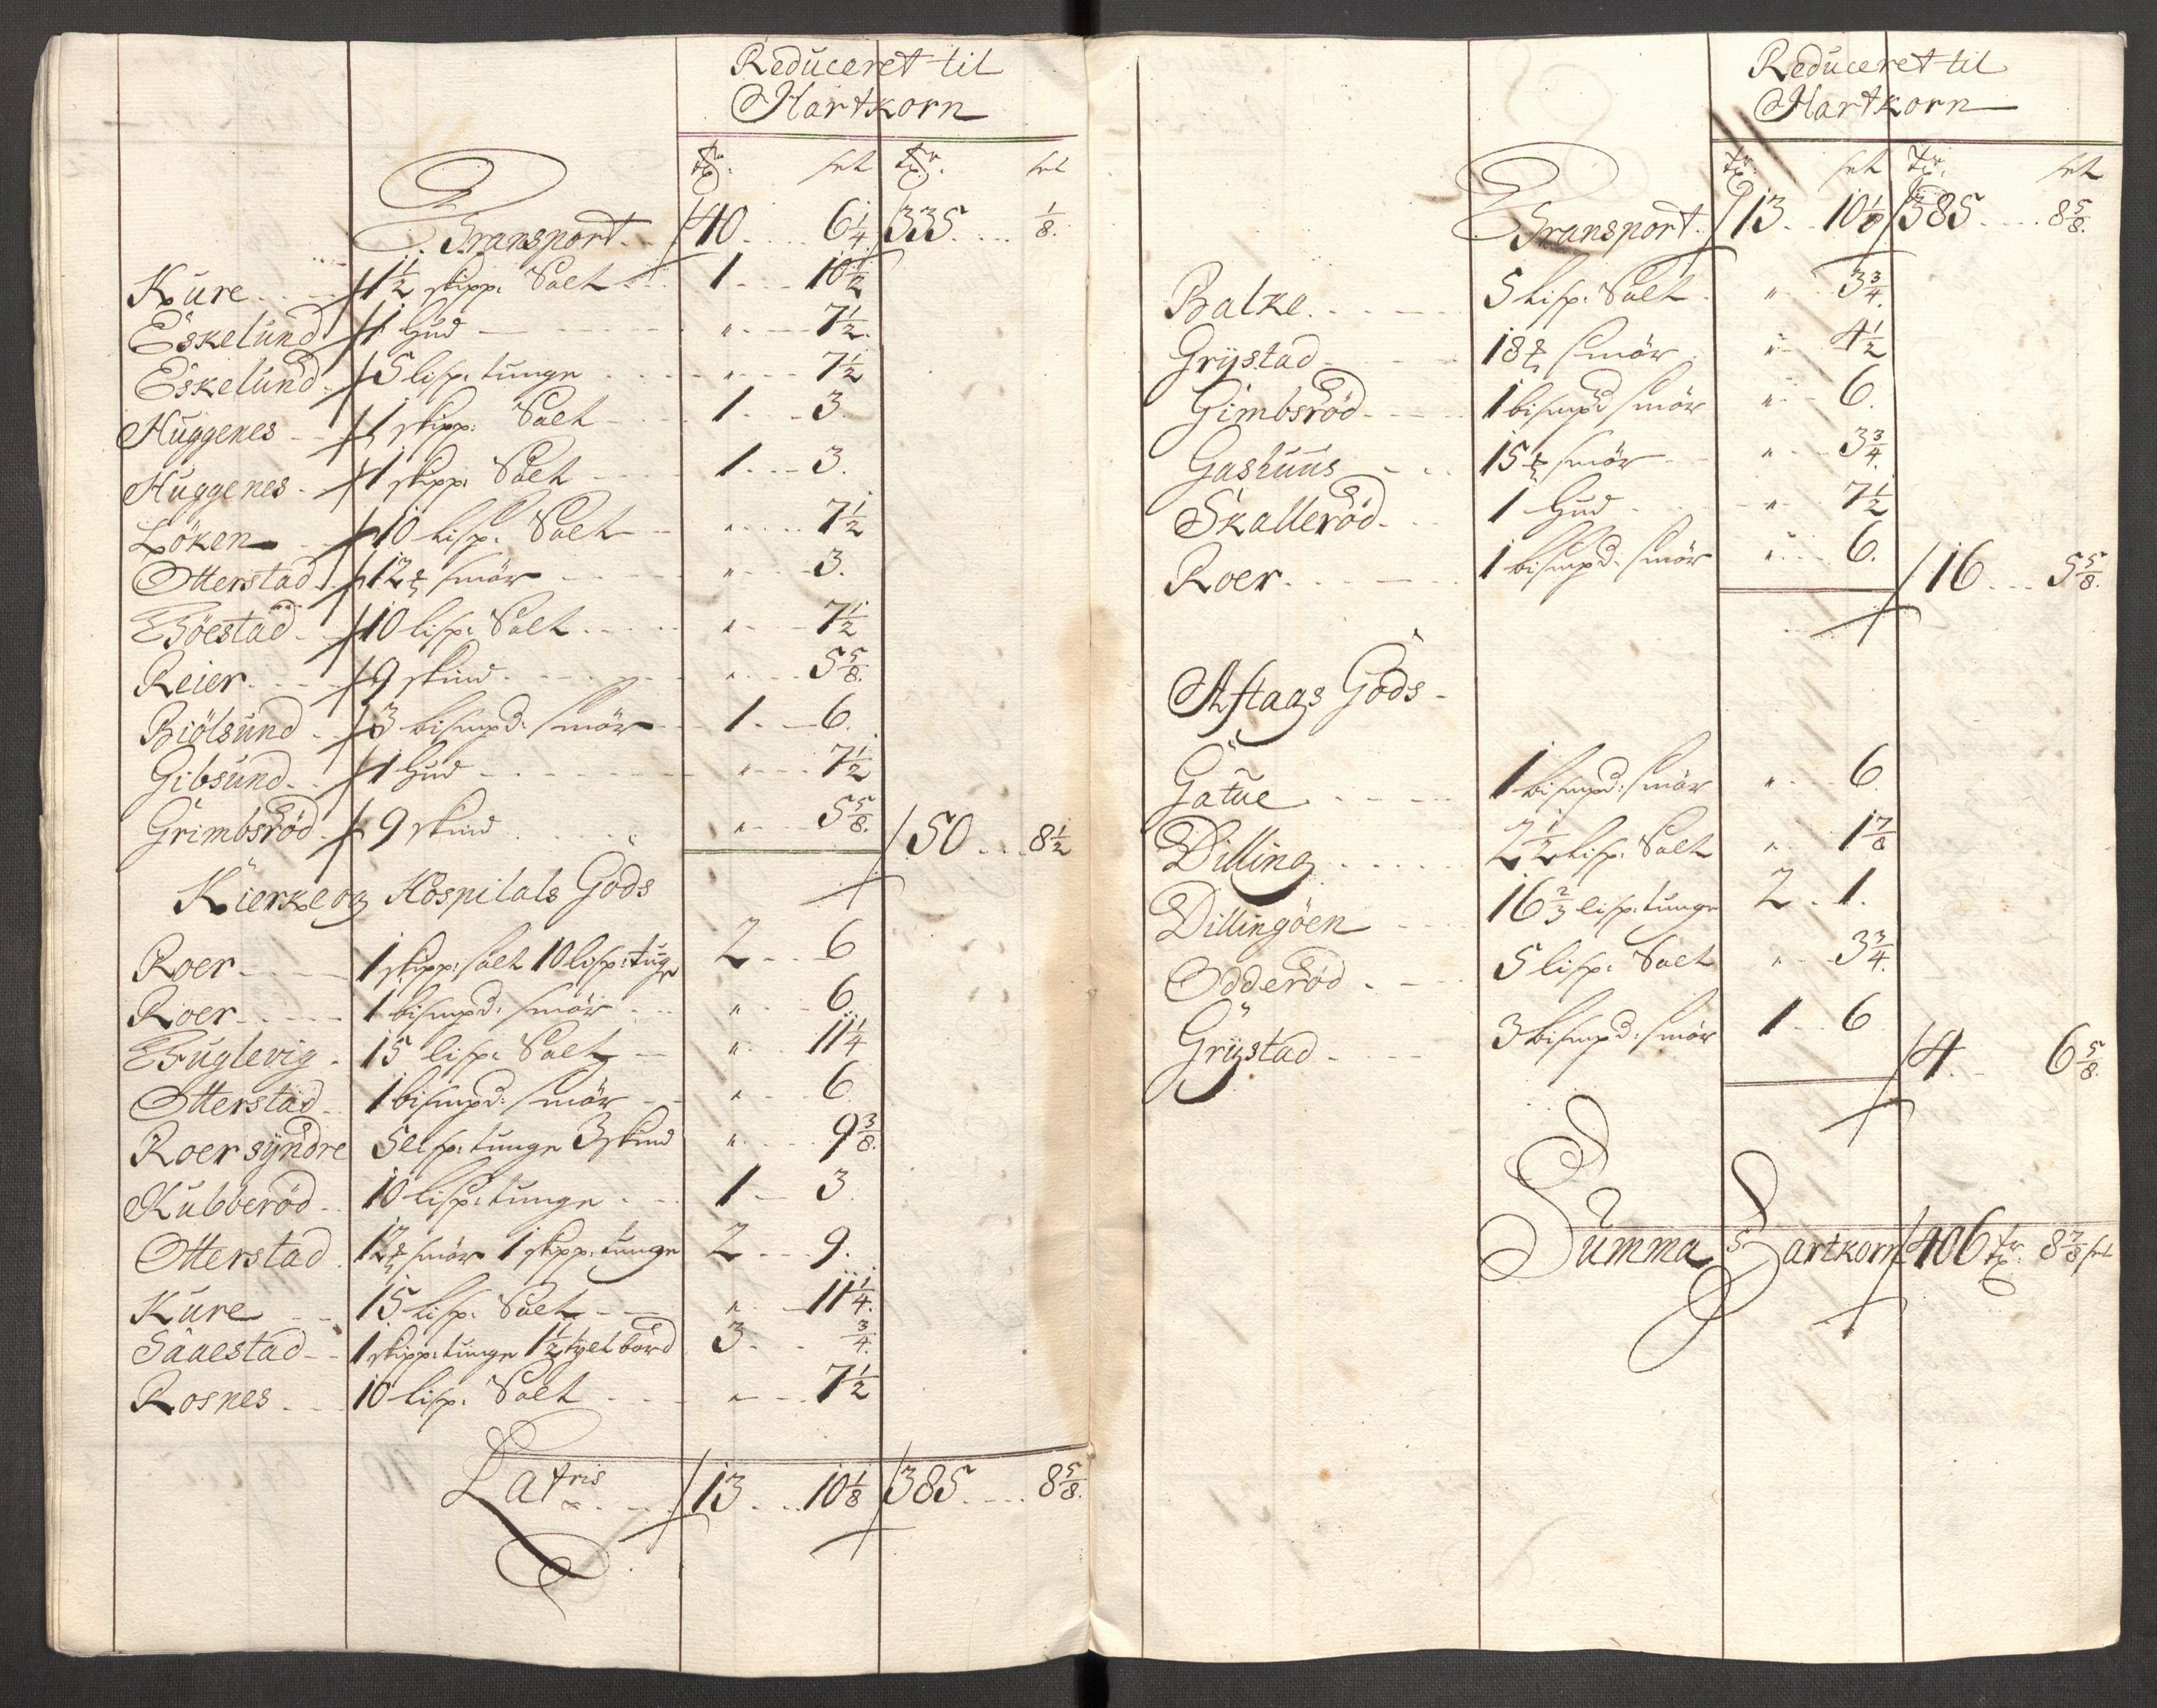 Reduceret til
Hartkorn
tr. set tr. set
Transport. 40. 6 1/4 335. 1/8.
Kure 1 1/2 skipp: Salt 1 10 1/2
Eskelund 1 Hud " 7 1/2.
Eskelund 5 lisp: tunge " 7 1/2
Huggenes 1 skipp: Salt 1 3.
Huggenes 1 skipp: Salt 1 3.
Löken 10 lisp: Salt " 7 1/2
Otterstad 12 smör " 3.
Töestad 10 lisp: Salt " 7 1/2
Reier 9 skind " 5 5/8.
Biölsund 3 bismpd: smör 1 6.
Gibsund 1 Hud " 7 1/2
Grimbsröd 9 skind " 5 5/8. 50 8 1/2
Kierke og Hospitals Gods
Roer 1 skipp: salt 10 lisp: tuge 2 6
Roer 1 bismpd: smör " 6
Fuglevig 15 lisp: Salt " 11 1/4
Otterstad 1 bismpd: smör " 6
Roer syndre 5 lisp: tunge 3 skind " 9 3/8.
Kubberöd 10 lisp: tunge 1 3.
Otterstad 12 smör 1 skipp: tunge 2 9.
Kure 15 lisp: Salt " 11 1/4.
Sååestad 1 skipp: tunge 1 1/2 tylt bord 3 3/4.
Rosnes 10 lisp: Salt " 7 1/2
Latris 13 10 1/8 385 8 5/8.
Reduceret til
Hartkorn
tr. set tr. set
Transport. 13 10 1/8 385 8 5/8.
Balke 5 lisp: Salt " 3 3/4.
Grÿstad 18 smör " 4 1/2
Gimbsröd 1 bismpd smör " 6.
Gashuus 15 smör " 3 3/4.
Skalleröd 1 Hud " 7 1/2
Roer 1 bismpd: smör " 6. 16 5 5/8.
Aflaags Gods
Gatue 1 bismpd: smör " 6
Dilling 2 1/2 lisp: Salt " 1 7/8
Dillingöen 16 2/3 lisp: tunge 2 1.
Odderöd 5 lisp: Salt " 3 3/4.
Grÿstad 3 bismpd: smör 1 6
4. 6 5/8.
Summa Hartkorn 406 tr. 8 7/8 set